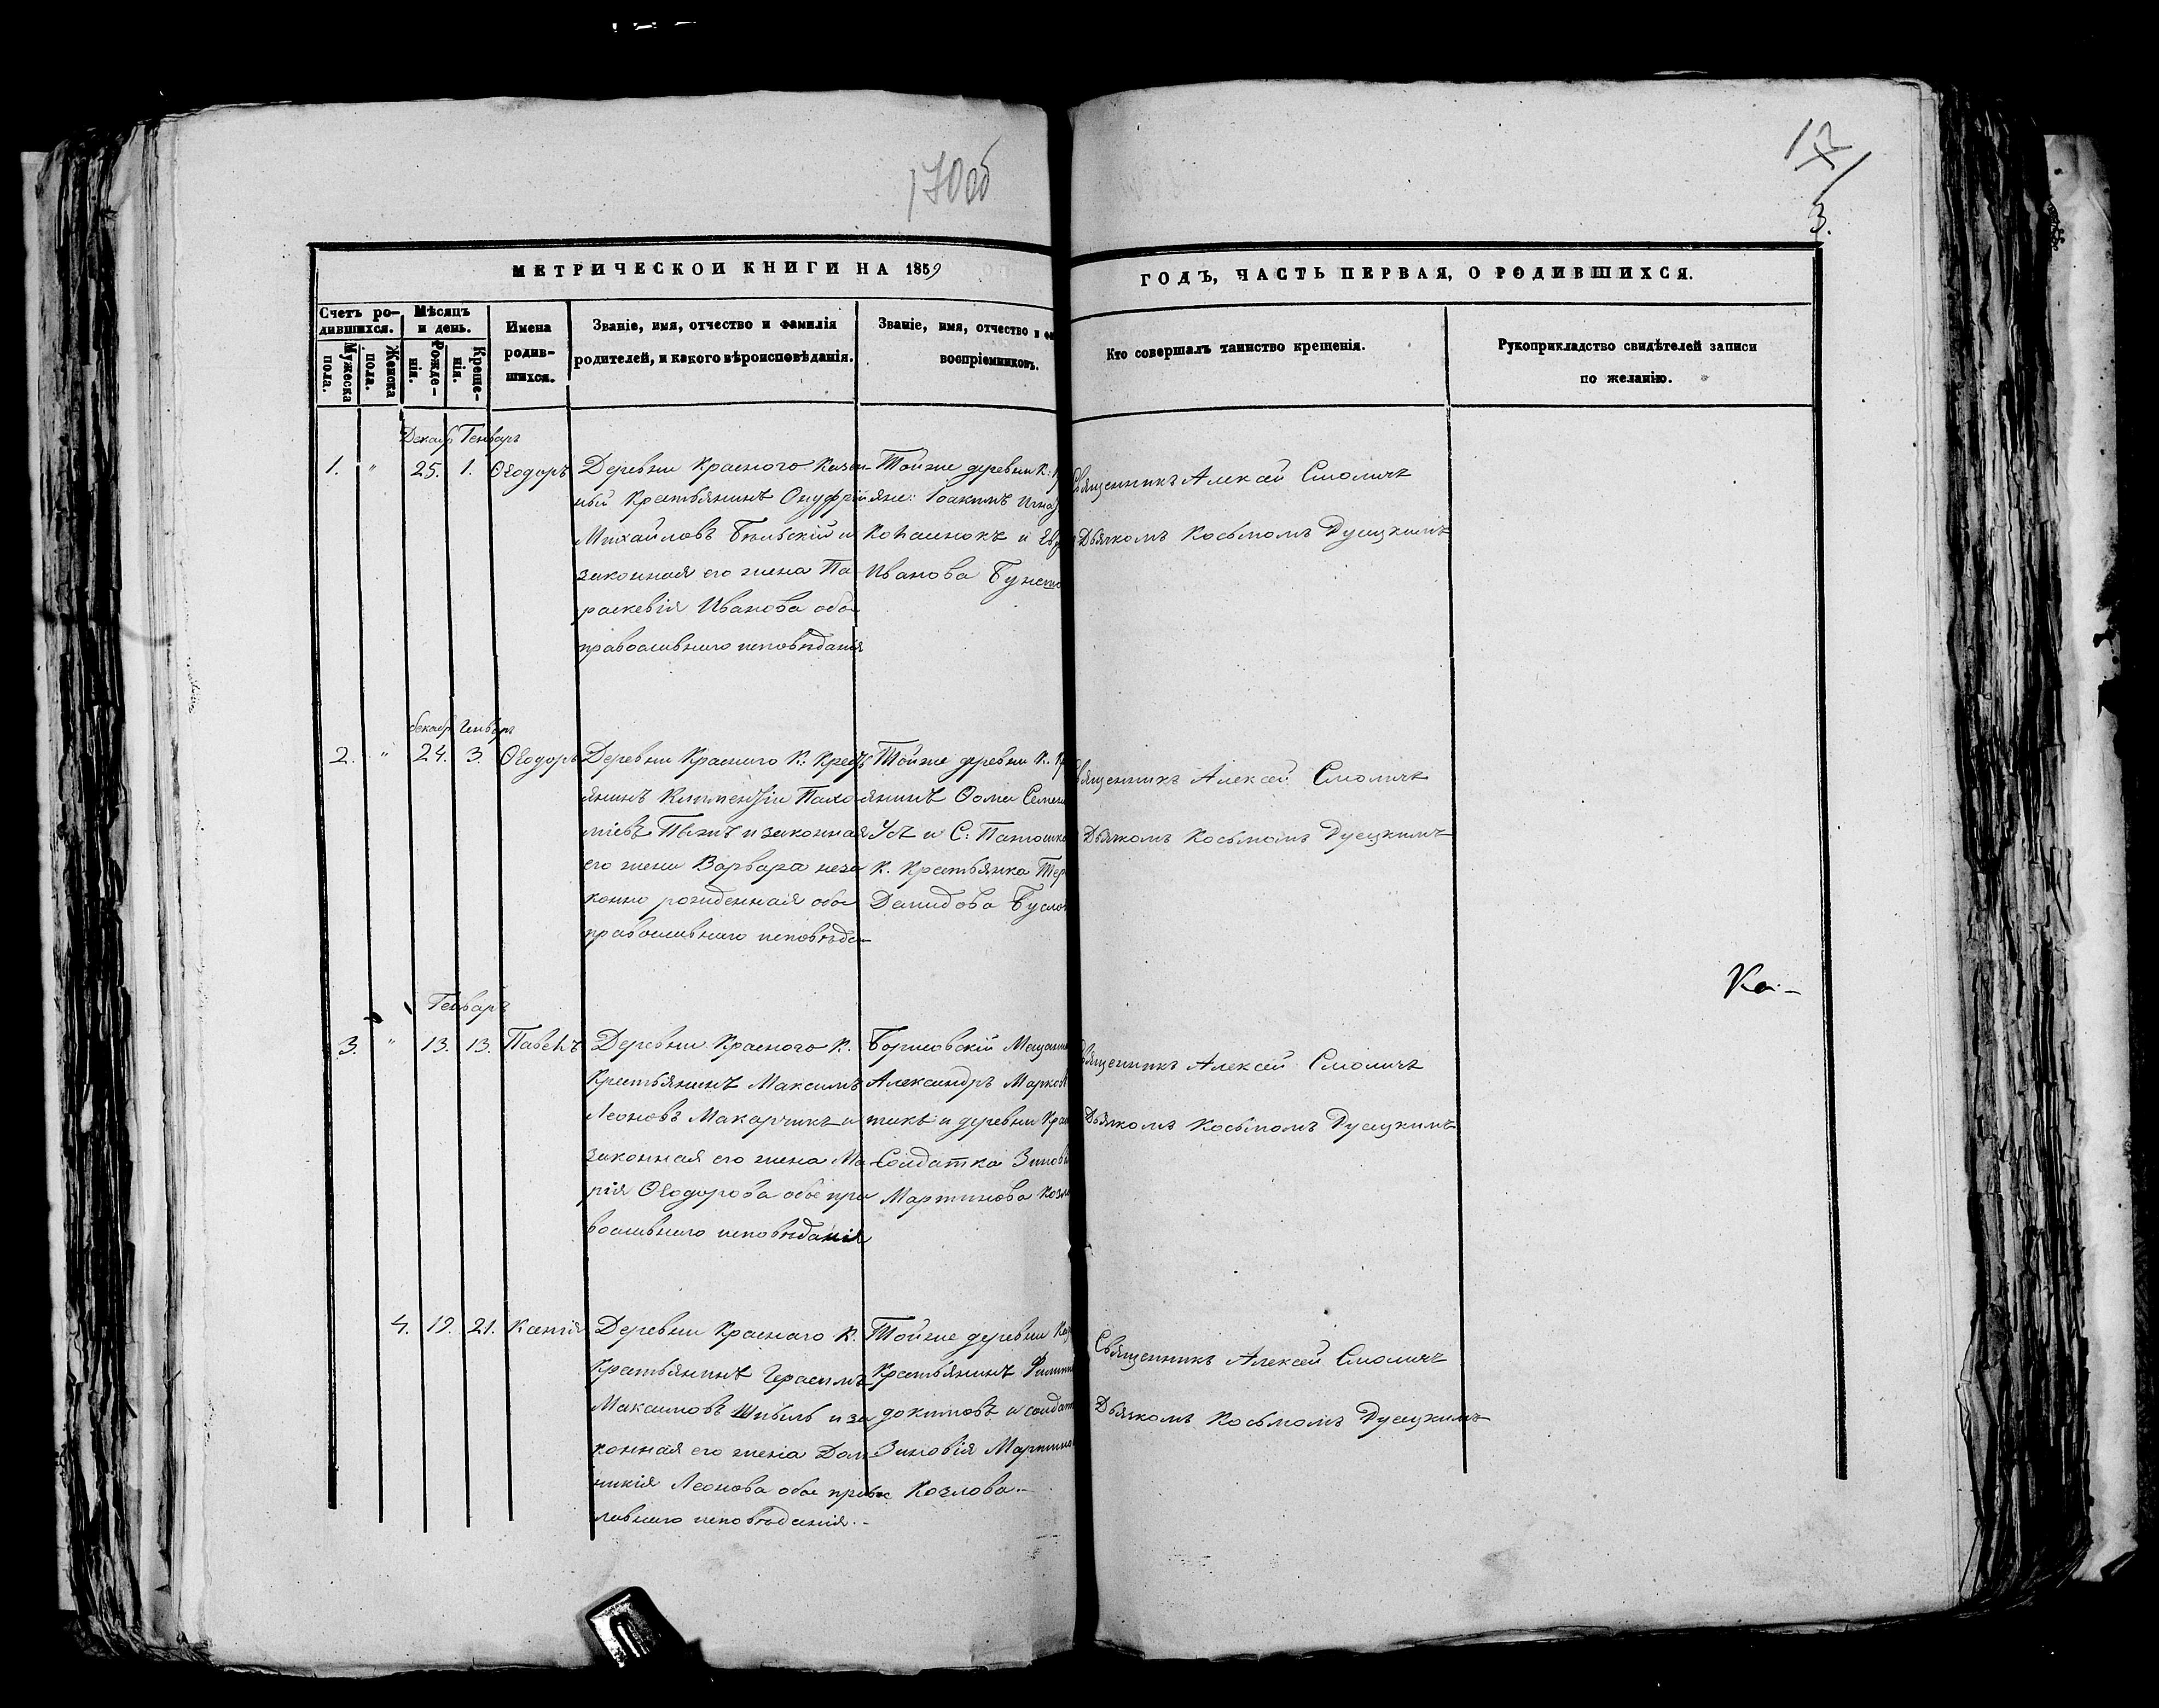 170об
17
3.
МЕТРИЧЕСКОЙ КНИГИ НА 1859
ГОДЪ, ЧАСТЬ ПЕРВАЯ, О РОДИВШИХСЯ.
Счетъ ро-
дившихся.
Мужеска
пола.
Женска
пола.
Мѣсяцъ
и день.
Рожде-
нія.
Креще-
нія.
Имена
родив-
шихся.
Званіе, имя, отчество и фамилія
родителей, и какого вѣроисповѣданія.
Званіе, имя, отчество и
воспріемниковъ.
Кто совершалъ таинство крещенія.
Рукоприкладство свидѣтелей записи
по желанію.
Декабр Генваръ
1. " 25. 1. Ѳеодоръ
Деревни Красного Казен-
ный Крестьянинъ Онуфрій
Михайловъ Бѣльскій и
законная его жена Па-
раскевія Иванова обо-
православнаго исповѣданія
Тойже деревни К:
яне: Іоакимъ
и
Иванова
Священникъ Алексѣй Смоличъ
Дьячкомъ Косьмомъ Дусцкимъ
декабр Генваръ
2. " 24. 3. Ѳеодоръ
Деревни Красного К. Крест
янинъ Климентій Пахо-
міевъ и законная
его жена Варвара неза
конно рожденная обое
православнаго исповѣда-
Тойже деревни К. Кр
янинъ Ѳома
и С:
К. Крестьянка
Демидова
Священникъ Алексѣй Смоличъ
Дьячкомъ Косьмомъ Дусцкимъ
Ка-
Генваръ
3. " 13. 13. Павелъ
Деревни Красного К.
Крестьянинъ Максимъ
Леоновъ Макарчикъ и
законная его жена Ма-
рія Ѳеодорова обое пра
вославнаго исповѣданія
Борисовскій
Александръ
и деревни
Солдатка
Мартинова
Священникъ Алексѣй Смоличъ
Дьячкомъ Косьмомъ Дусцкимъ
4. 19. 21. Ксенія
Деревни Краснаго К.
Крестьянинъ Герасимъ
Максимовъ и за
конная его жена Дом-
никія Леонова обое право
лавнаго исповѣданія.-
Тойже деревни
Крестьянинъ
и
Зиновія
Козлова.-
Священникъ Алексѣй Смоличъ
Дьячкомъ Косьмомъ Дусцкимъ